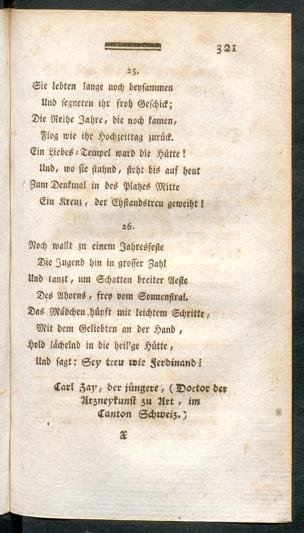 321
25.
Sie lebten lange noch beysammen
Und segneten ihr froh Geschick;
Die Reihe Jahre, die noch kamen,
Flog wie ihr Hochzeittag zurück.
Ein Liebes-Tempel ward die Hütte!
Und, wo sie stuhnd, steht bis auf heut
Zum Denkmal in des Platzes Mitte
Ein Kreuz, der Ehstandstreu geweiht!
26.
Noch wallt zu einem Jahresfeste
Die Jugend hin in grosser Zahl
Und tanzt, um Schatten breiter Aeste
Des Ahorns, frey vom Sonnenstral.
Das Mädchen hüpft mit leichtem Schritte,
Mit dem Geliebten an der Hand,
Hold lächelnd in die heil'ge Hütte,
Und sagt: Sey treu wie Ferdinand!
Carl Zay, der jüngere, (Doctor der
Arzneykunst zu Art, im
Canton Schweiz.)
X